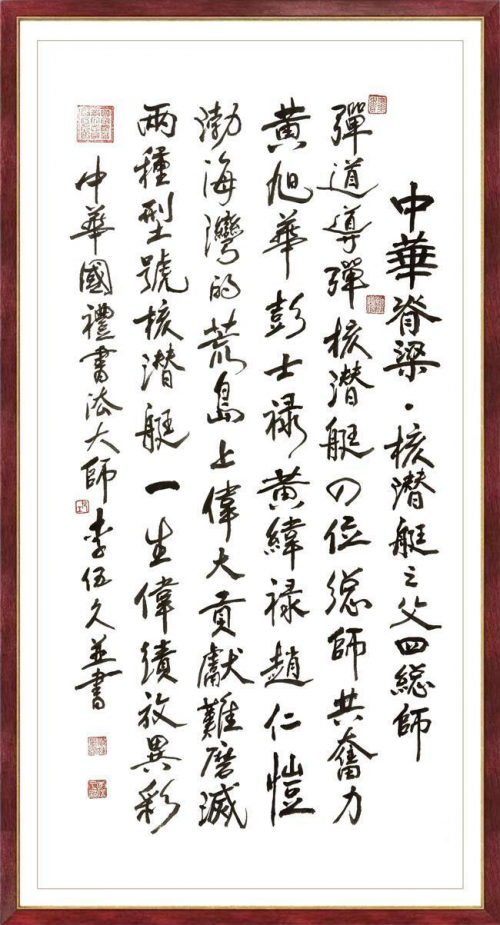 中華脊梁·核潛艇之父四總師
彈道導彈核潛艇四位總師共奮力
黃旭華彭士祿黃緯祿趙仁愷
渤海灣的荒島上偉大貢獻難磨滅
兩種型號核潛艇一生偉績放異彩
中華國禮書法大師李伍久並書